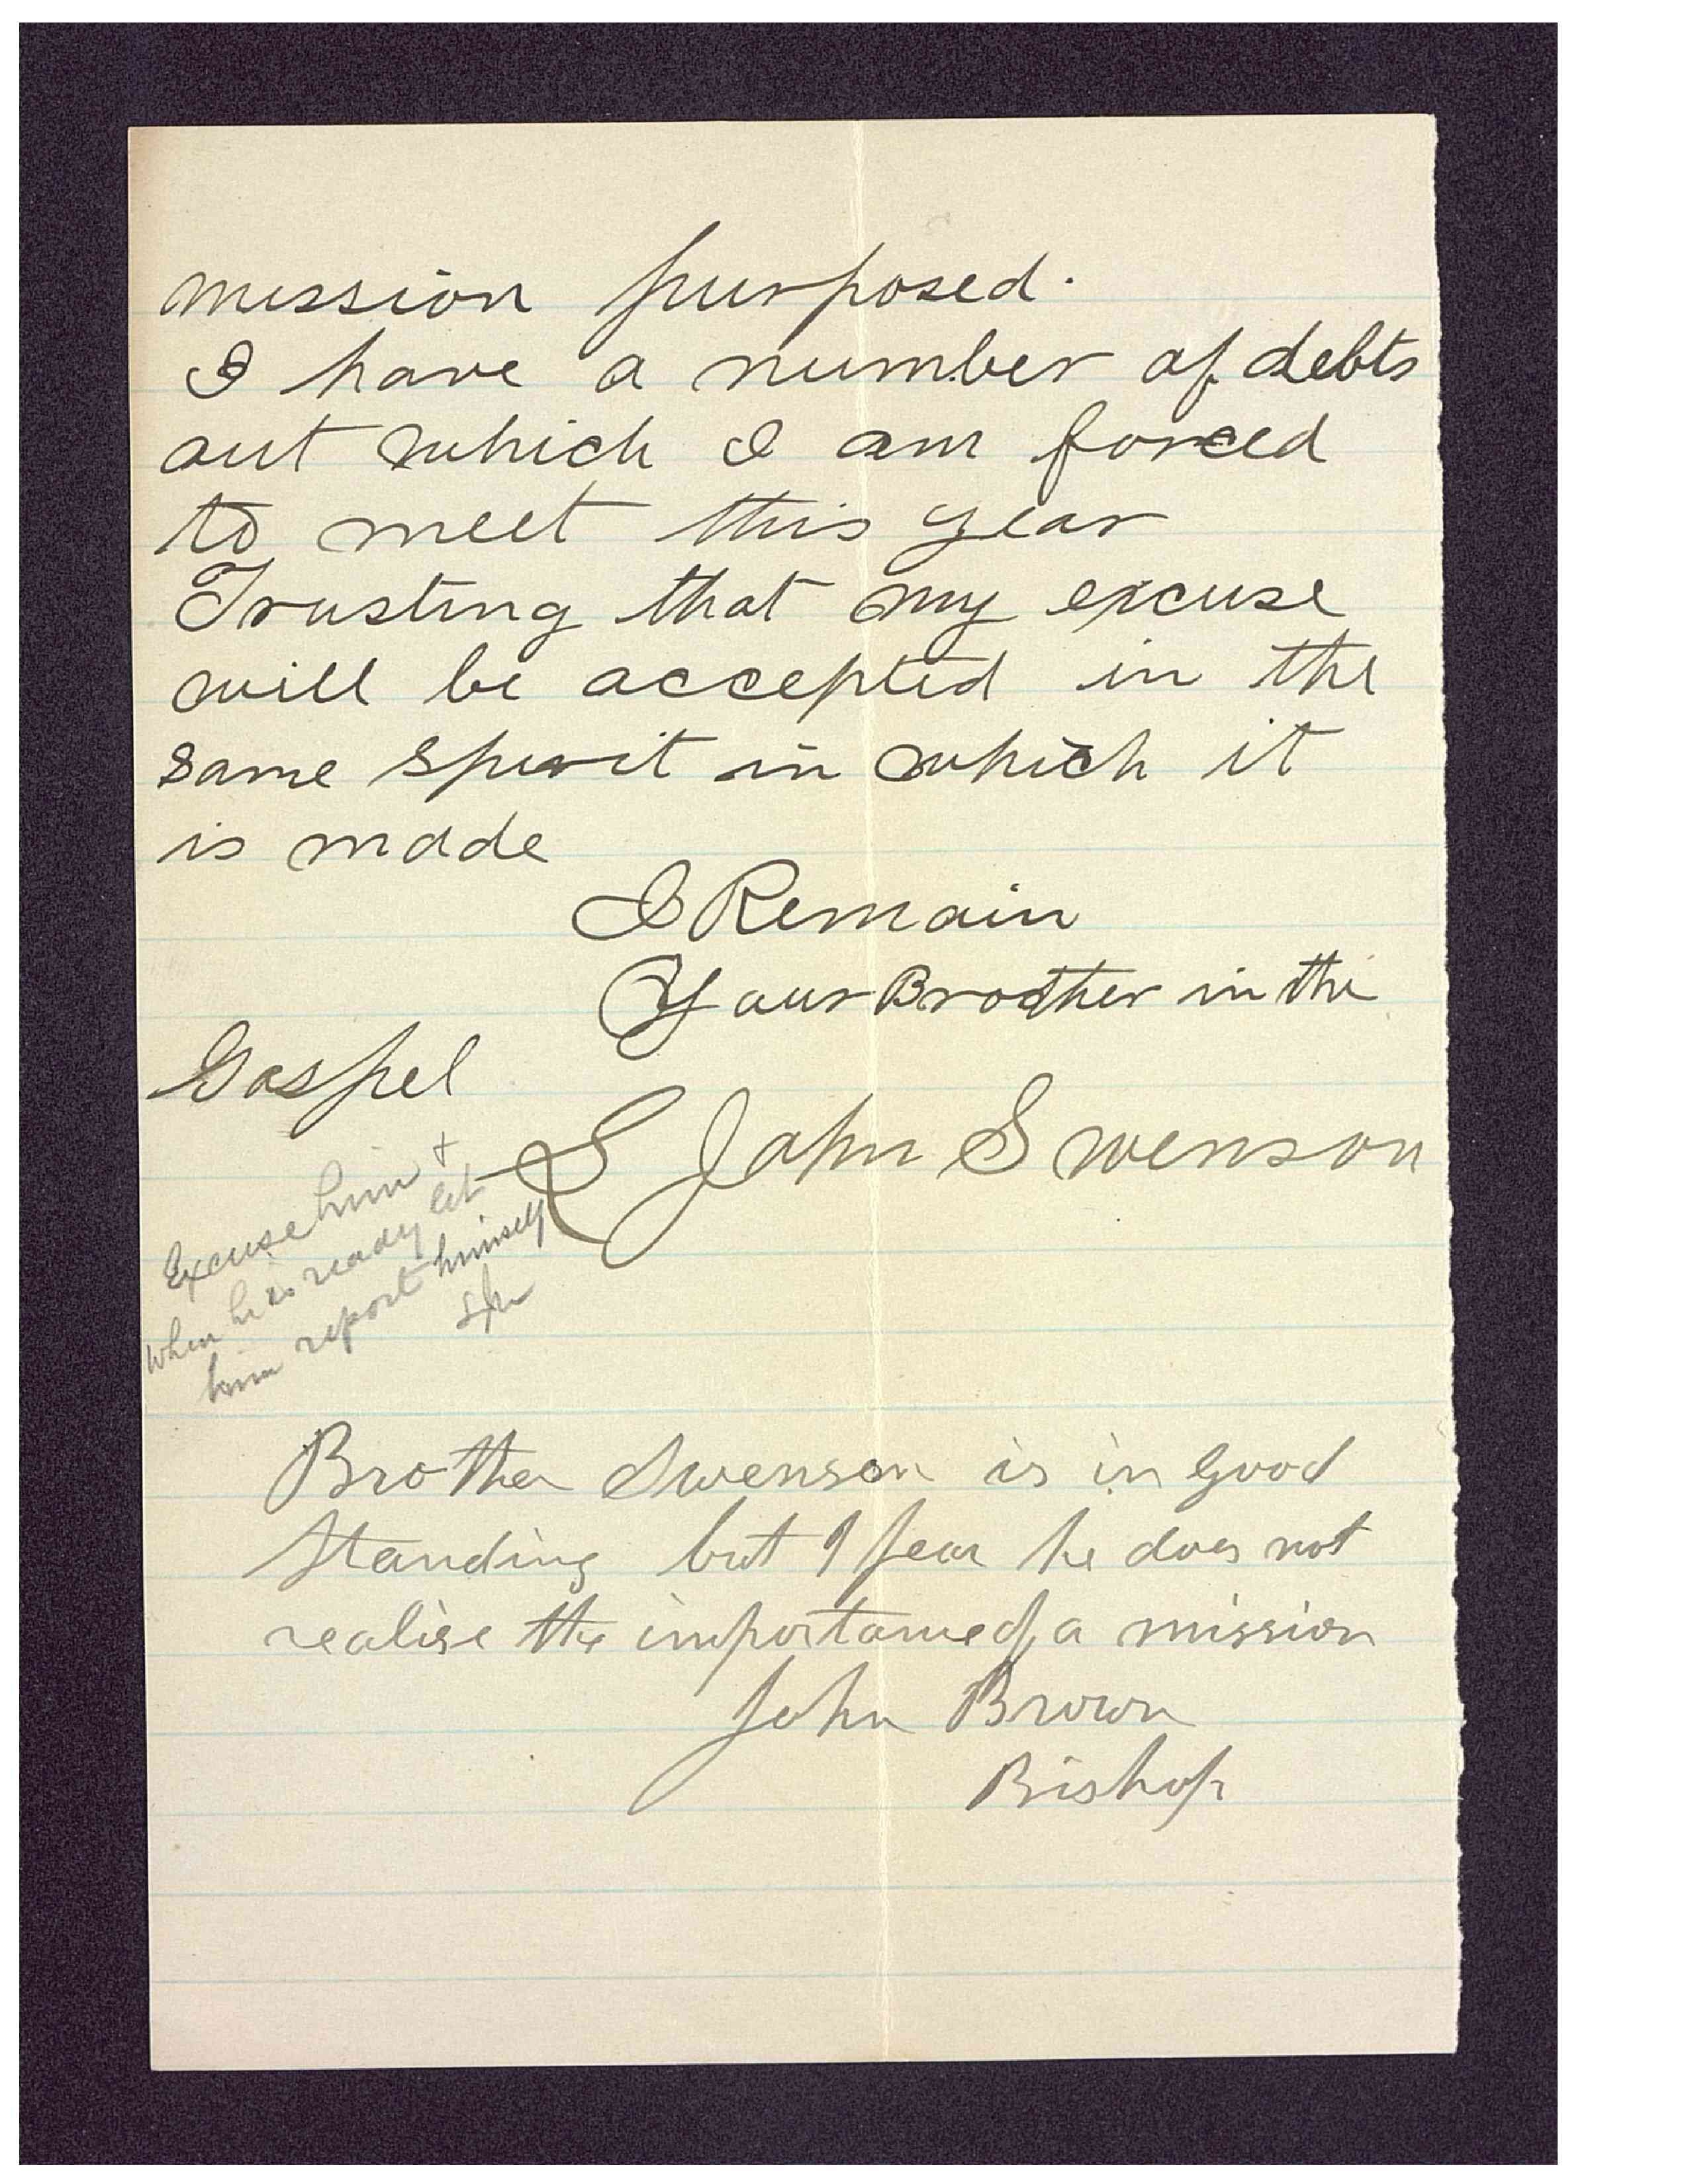 mission purposed.
I have a number of debts
out which I am forced
to meet this year
Trusting that my excuse
will be accepted in the
same spirit in which it
is made
I Remain
Your Brother in the
Gospel
S John Swenson
Excuse him +
when he is ready let
him report himself
Brother Swenson is in good
standing but I fear he does not
realise the importance of a mission
John Brown
Bishop